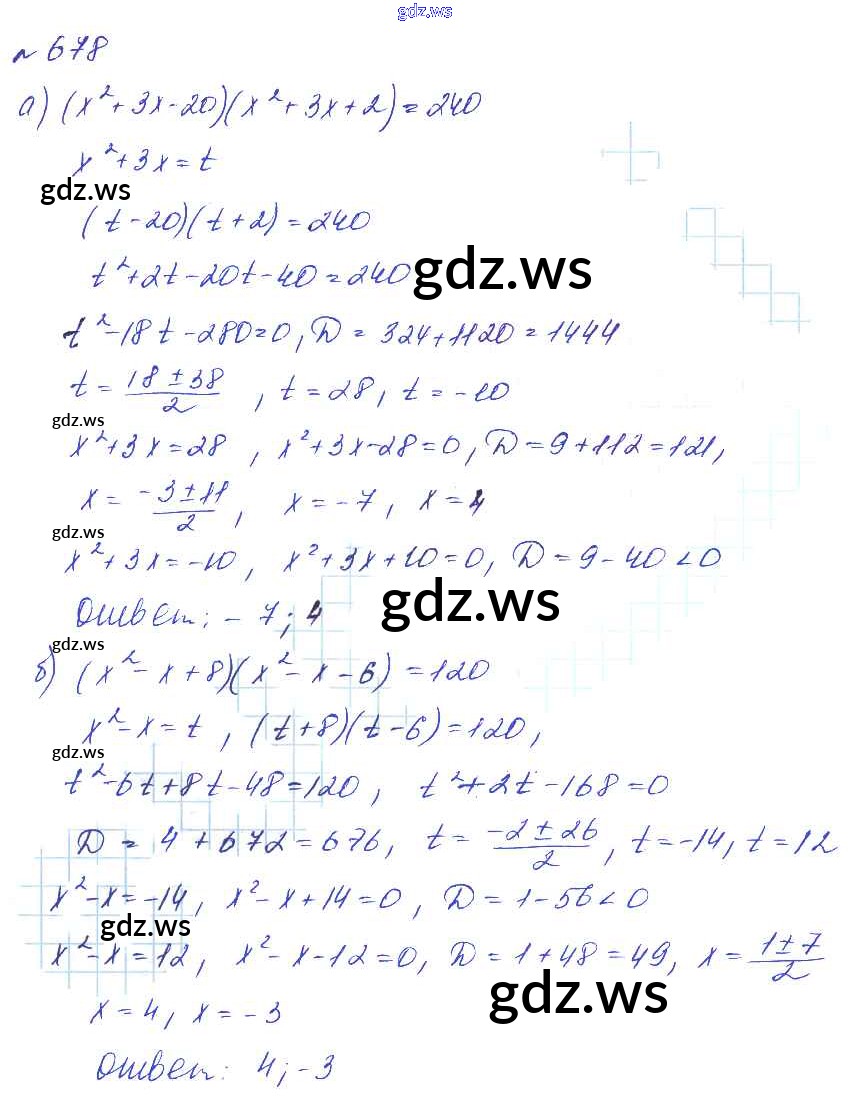 gdz.ws
№ 678
а) (x²+3x-20)(x²+3x+2)=240
x²+3x=t
gdz.ws
(t-20)(t+2)=240
t²+2t-20t-40=240
gdz.ws
t²-18t-280=0, D=324+1120=1444
t=(18±38)/2, t=28, t=-10
gdz.ws
x²+3x=28, x²+3x-28=0, D=9+112=121,
x=(-3±11)/2, x=-7, x=4
gdz.ws
x²+3x=-10, x²+3x+10=0, D=9-40<0
gdz.ws
Ответ: -7; 4
gdz.ws
б) (x²-x+8)(x²-x-6)=120
x²-x=t, (t+8)(t-6)=120,
gdz.ws
t²-6t+8t-48=120, t²+2t-168=0
D=4+672=676, t=(-2±26)/2, t=-14, t=12
x²-x=-14, x²-x+14=0, D=1-56<0
gdz.ws
x²-x=12, x²-x-12=0, D=1+48=49, x=(1±7)/2
gdz.ws
x=4, x=-3
Ответ: 4; -3